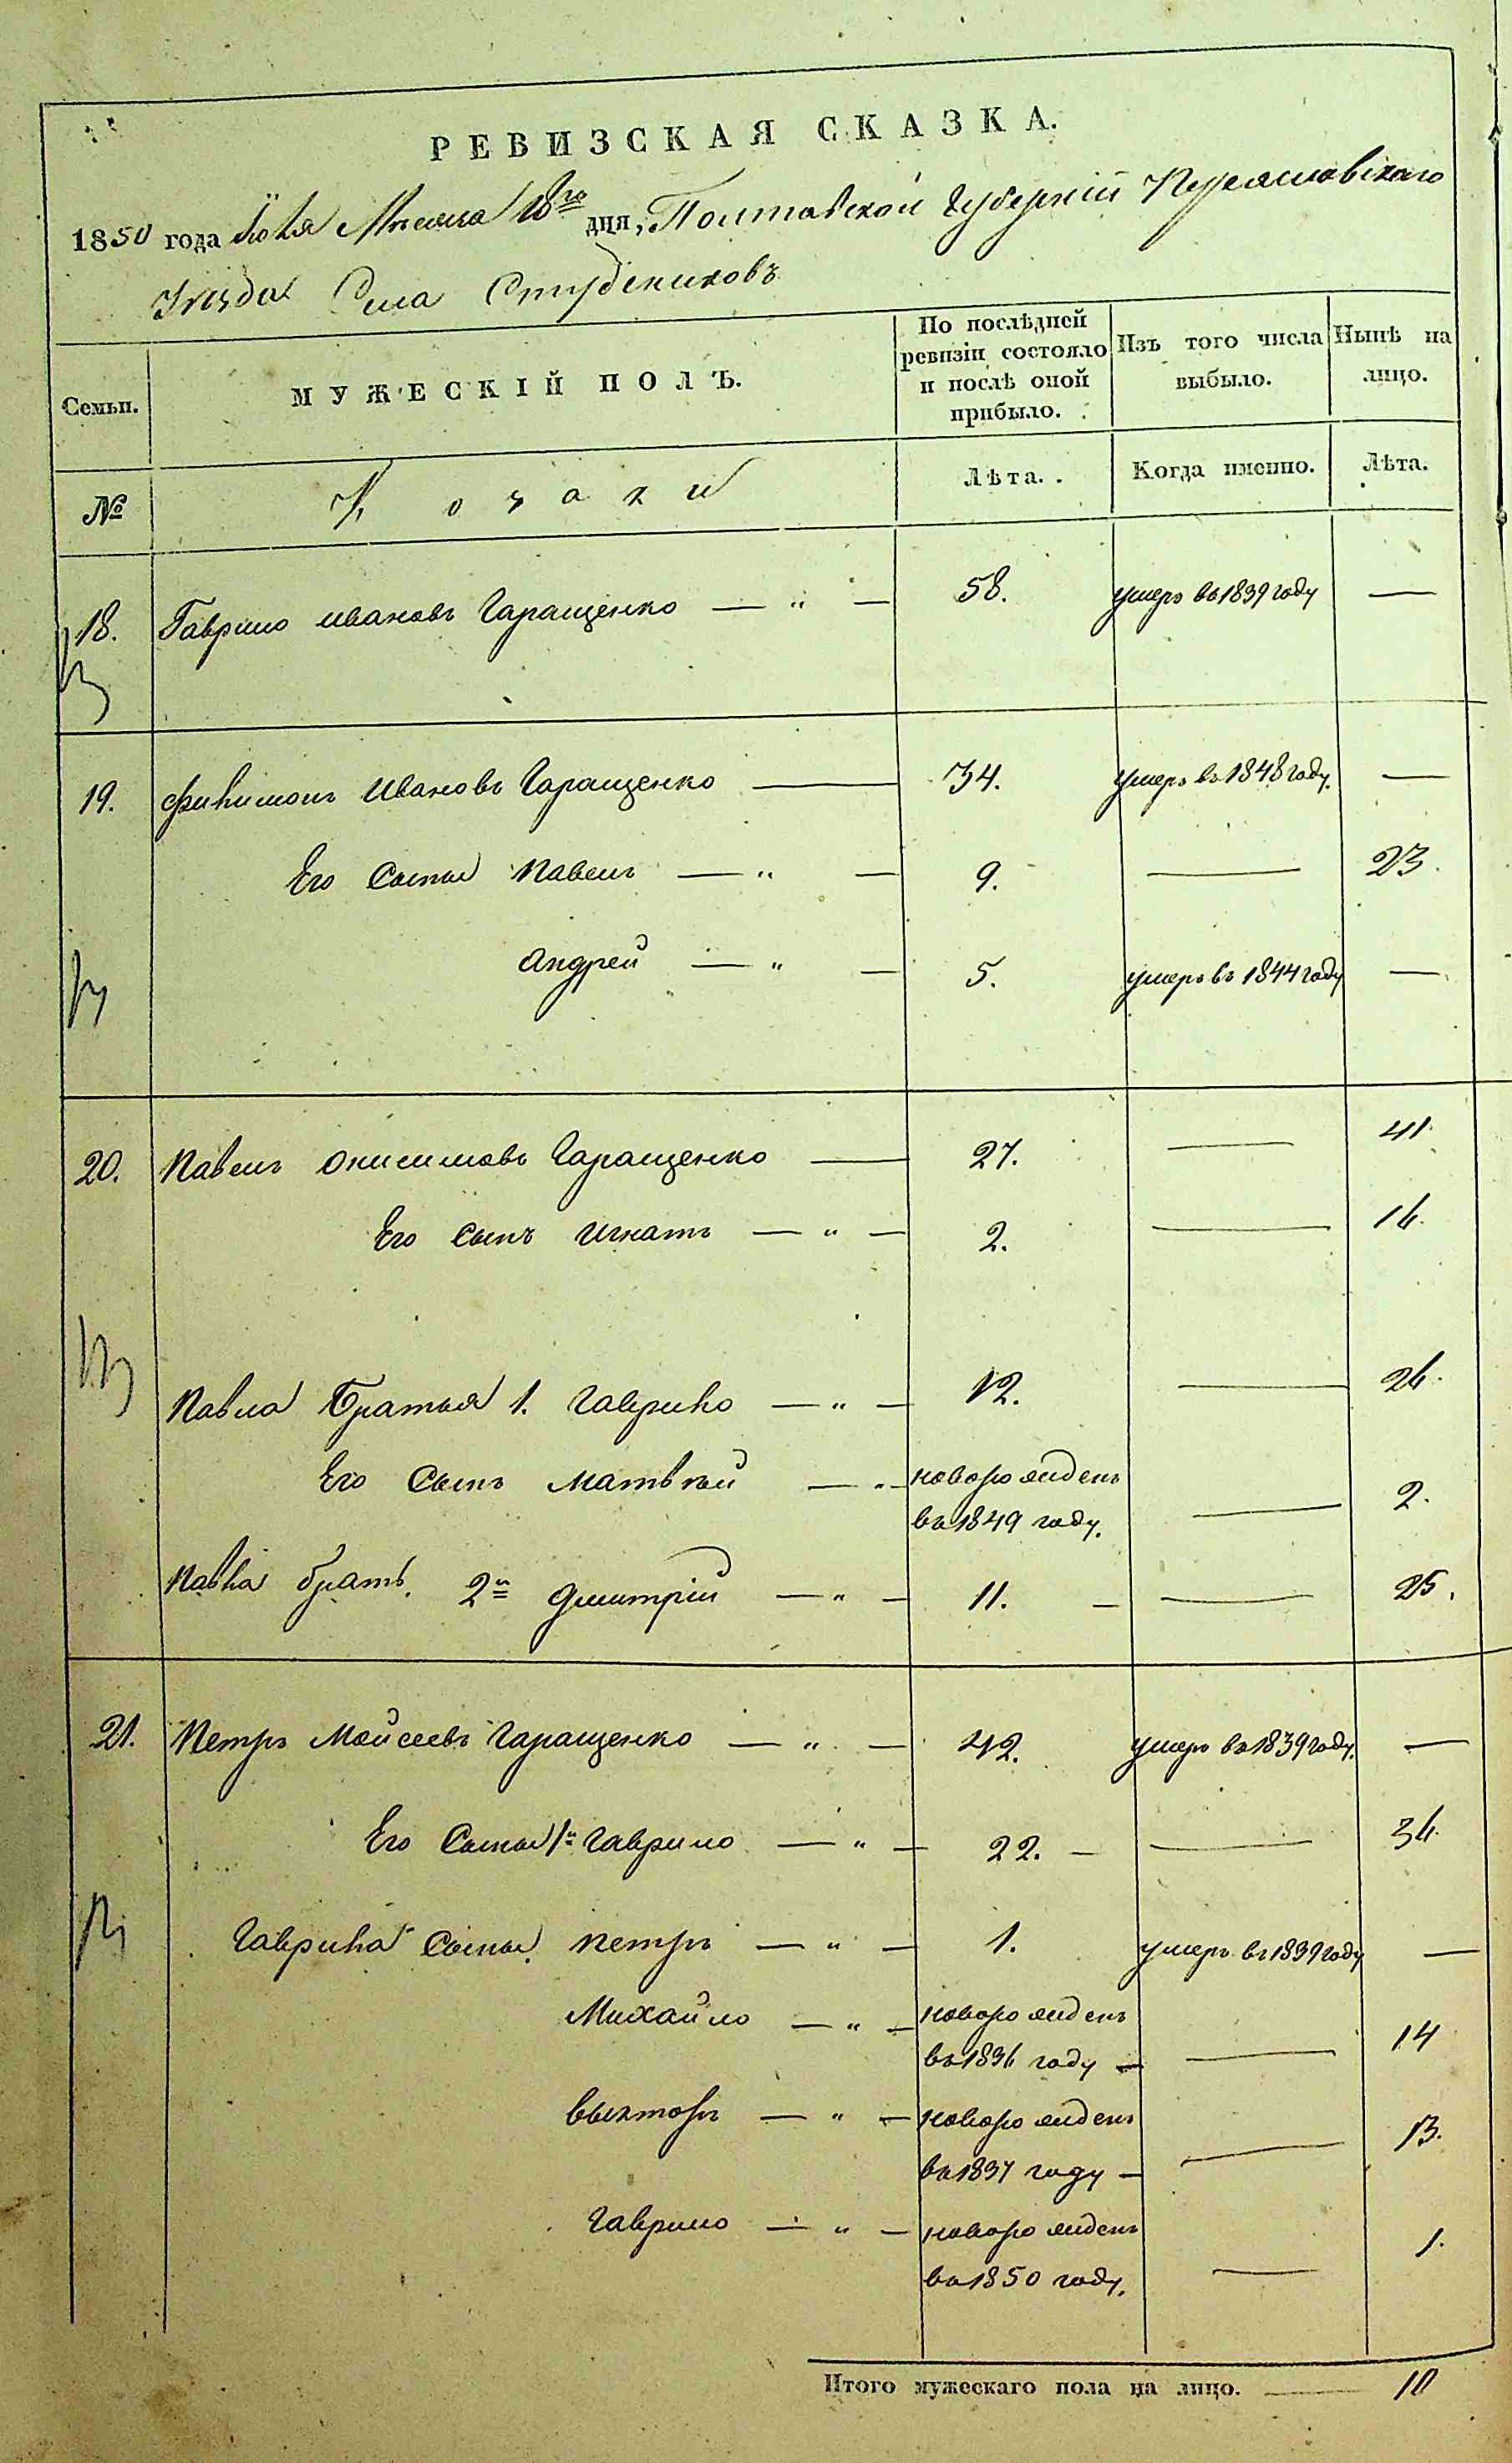 РЕВИЗСКАЯ СКАЗКА.
1850 года Июля Месяца 18го дня, Полтавской Губерніи Переяславского
Уезда Села Студениковъ
Семьи.
МУЖЕСКІЙ ПОЛЪ.
По послѣдней ревизіи состояло и послѣ оной прибыло.
Изъ того числа выбыло.
Нынѣ на лицо.
№
Козаки
Лѣта.
Когда именно.
Лѣта.
18. Гаврило ивановъ Гаращенко — „ — 58. умеръ въ 1839 году —
19. Филимонъ Ивановъ Гаращенко — 34. умеръ въ 1848 году. —
Его Сыны Павелъ — „ — 9. — 23.
Андрей — „ — 5. умеръ въ 1844 году —
20. Павелъ Онисимовъ Гаращенко — 27. — 41.
Его Сынъ Игнатъ — „ — 2. — 16.
Павла Братья 1. Гаврило — „ — 12. — 26.
Его Сынъ Матвѣй — „ — новорожденъ — 2.
въ 1849 году.
Павла братъ. 2й Дмитрій — „ — 11. — — 25.
21. Петръ Мойсеевъ Гаращенко — „ — 42. умеръ въ 1839 году. —
Его Сыны 1й Гаврило — „ — 22. — — 36.
Гаврила Сыны Петръ — „ — 1. умеръ въ 1839 году —
Михайло — „ — новорожденъ
въ 1836 году — — 14
Выкторъ — „ — новорожденъ
въ 1837 году — — 13.
Гаврило — „ — новорожденъ
въ 1850 году. — 1.
Итого мужескаго пола на лицо. — 10